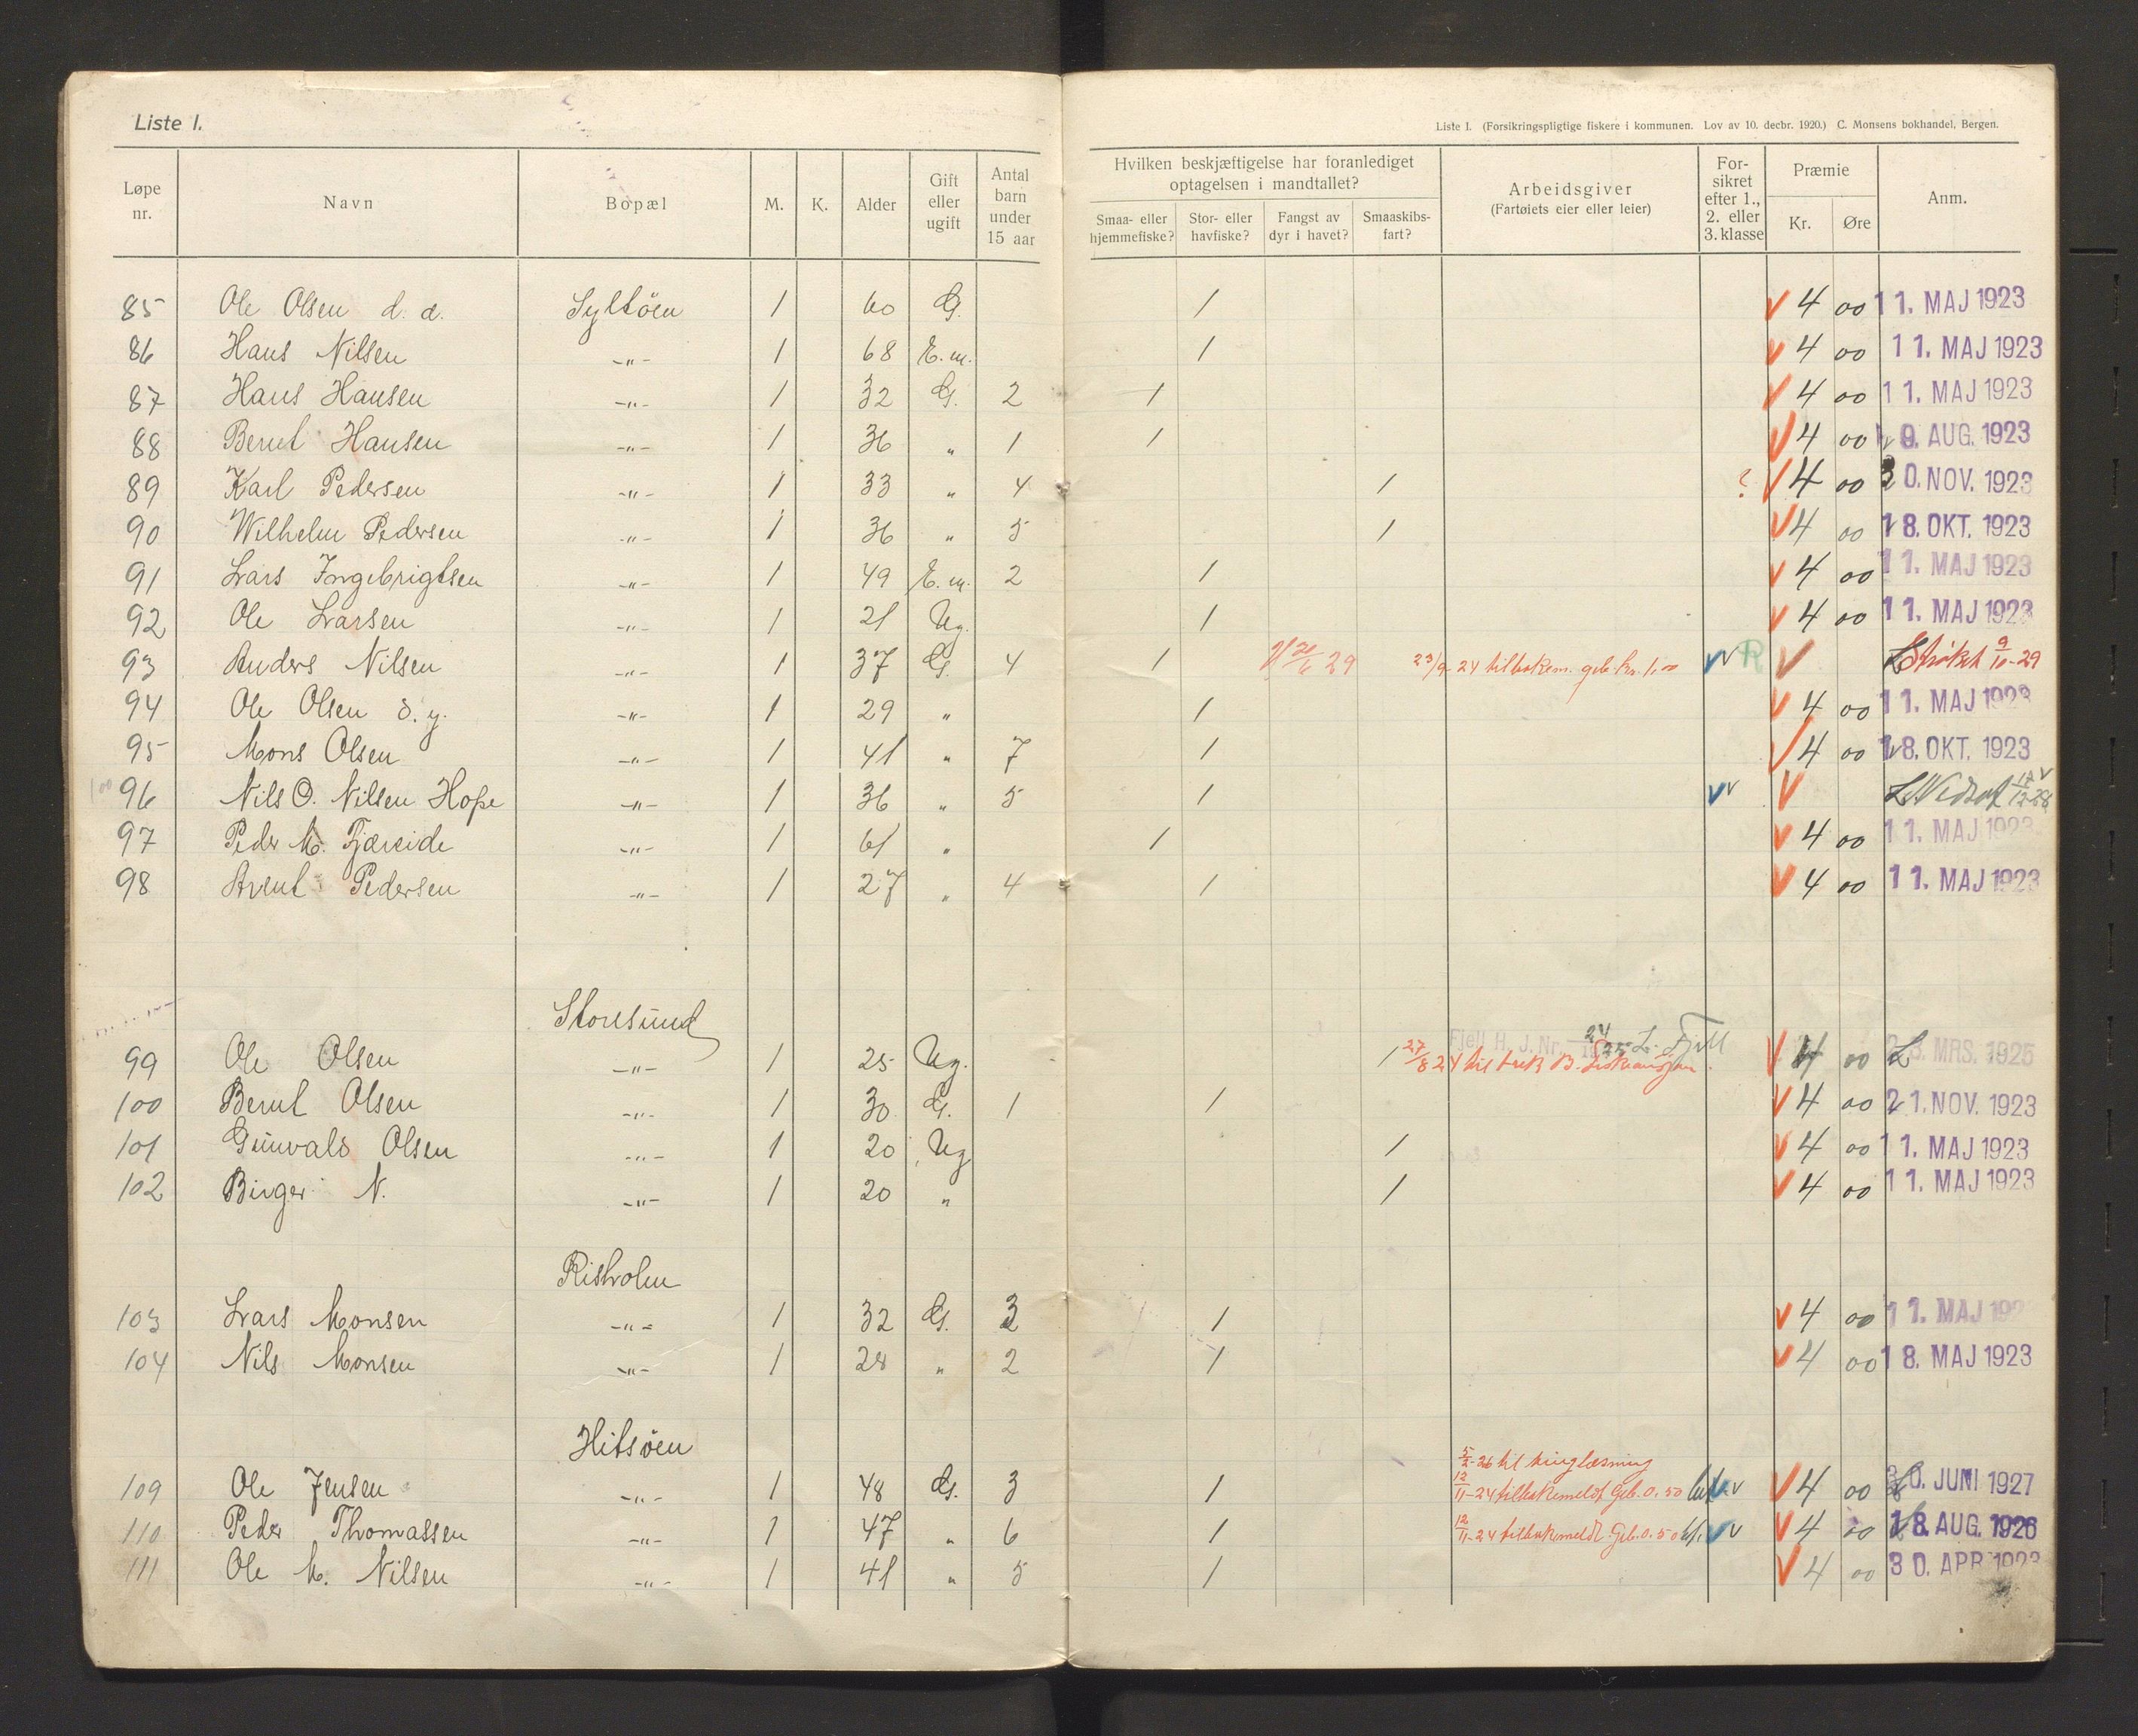 Liste I.
Liste I. (Forsikringspligtige fiskere i kommunen. Lov av 10. decbr. 1920.) C. Monsens bokhandel, Bergen.
Løpe nr. Navn Bopæl M. K. Alder Gift eller ugift Antal barn under 15 aar Hvilken beskjæftigelse har foranlediget optagelsen i mandtallet? Smaa- eller hjemmefiske? Stor- eller havfiske? Fangst av dyr i havet? Smaaskibsfart? Arbeidsgiver (Fartøiets eier eller leier) Forsikret efter 1., 2. eller 3. klasse Præmie Kr. Øre Anm.
85 Ole Olsen d. e. Syltöen 1 60 G. 1 V 4 00 11. MAJ 1923
86 Hans Nilsen -"- 1 68 E.m. 1 V 4 00 11. MAJ 1923
87 Hans Hansen -"- 1 32 G. 2 1 V 4 00 11. MAJ 1923
88 Bernt Hansen -"- 1 36 " 1 1 V 4 00 9. AUG. 1923
89 Karl Pedersen -"- 1 33 " 4 1 ? V 4 00 30. NOV. 1923
90 Wilhelm Pedersen -"- 1 36 " 5 1 V 4 00 18. OKT. 1923
91 Lars Ingebrigtsen -"- 1 49 E.m. 2 1 V 4 00 11. MAJ 1923
92 Ole Larsen -"- 1 21 Ug. 1 V 4 00 11. MAJ 1923
93 Anders Nilsen -"- 1 37 G. 4 1 29 23/9 24 tilbakem. geb. kr. 1,00 V R V Strøket 9/10-29
94 Ole Olsen d. y. -"- 1 29 " 1 V 4 00 11. MAJ 1923
95 Mons Olsen -"- 1 41 " 7 1 V 4 00 18. OKT. 1923
100 96 Nils O. Nilsen Hope -"- 1 36 " 5 1 V V
97 Peder M. Fjæreide -"- 1 61 " 1 V 4 00 11. MAJ 1923
98 Arent Pedersen -"- 1 27 " 4 1 V 4 00 11. MAJ 1923
Storesund
Fjell H. J. Nr. L. Fjell
99 Ole Olsen -"- 1 25 Ug. 1 27/8 24 til trek B. V 4 00 MRS. 1925
100 Bernt Olsen -"- 1 30 G. 1 1 V 4 00 21. NOV. 1923
101 Gunvald Olsen -"- 1 20 Ug 1 V 4 00 11. MAJ 1923
102 Birger N. -"- 1 20 " 1 V 4 00 11. MAJ 1923
Risholm
103 Lars Monsen -"- 1 32 G. 3 1 V 4 00 11. MAJ 192
104 Nils Monsen -"- 1 28 " 2 1 V 4 00 18. MAJ 1923
Hitsöen
5/2-26 til tinglæsning
109 Ole Jensen -"- 1 48 G. 3 1 12/11-24 tilbakemeldt Geb. 0.50 V V 4 00 30. JUNI 1927
110 Peder Thomassen -"- 1 47 " 6 1 12/11-24 tilbakemeldt Geb. 0.50 V V 4 00 18. AUG. 1926
111 Ole M. Nilsen -"- 1 41 " 5 1 V 4 00 30. APR 1923